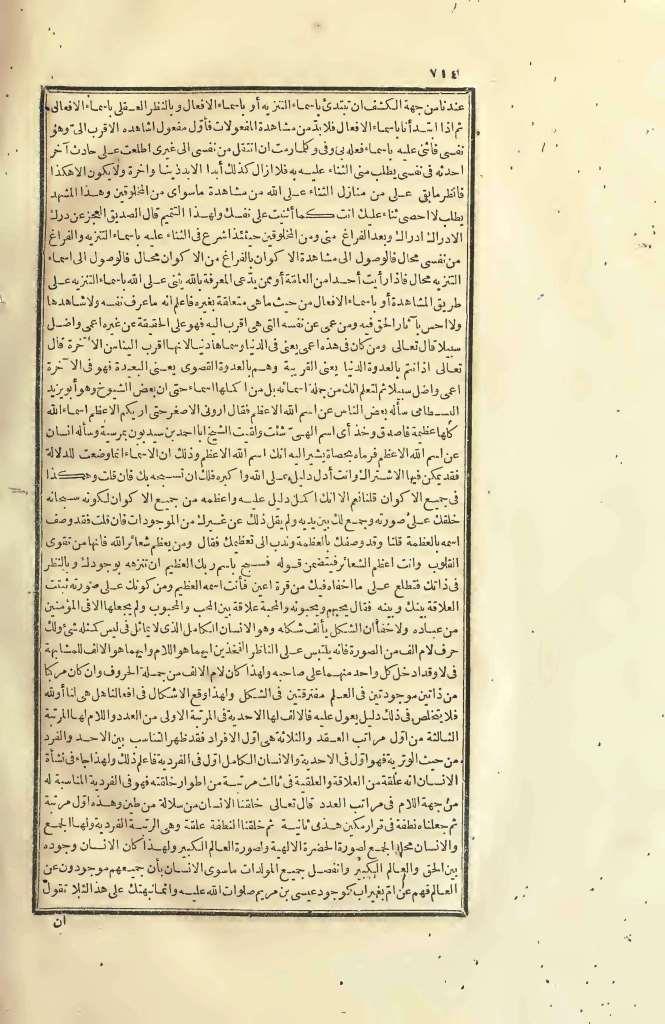 ٧١٤
عندنا من جهة الكشف ان تبتدئ باسماء التنزيه أو باسماء الافعال وبالنظر العقلى باسماء الافعالى
ثم اذا ابتدأنا باسماء الافعال فلا بدّ من مشاهدة المفعولات فأوّل مفعول اشاهده الاقرب الىّ وهو
نفسى فاثنى عليه باسماء فعله بى وفى وكلما رمت ان انتقل من نفسى الى غيرى اطلعت على حادث آخر
احدثه فى نفسى يطلب منى الثناء عليه به فلا ازال كذلك أبد الابد دنيا واخرة ولا يكون الاهكذا
فانظر ما بقى على من منازل الثناء على الله من مشاهدة ما سواى من المخلوقين وهذا المشهد
يطلب لا احصى ثناء عليك انت كما أثنيت على نفسك ولهذا التتميم قال الصديق العجز عن درك
الادراك ادراك وبعد الفراغ منى ومن المخلوقين حينئذ اشرع فى الثناء عليه باسماء التنزيه والفراغ
من نفسى محال فالوصول الى مشاهدة الاكوان بالفراغ من الاكوان محال فالوصول الى اسماء
التنزيه محال فاذا رأيت أحدا من العامّة أو ممن يدّعى المعرفة بالله يثنى على الله باسماء التنزيه على
طريق المشاهدة أو باسماء الافعال من حيث ما هى متعلقة بغيره فاعلم انه ما عرف نفسه ولا شاهدها
ولا احس بآثار الحق فيه ومن عمى عن نفسه التى هى اقرب اليه فهو على الحقيقة عن غيره اعمى واضل
سبيلا قال تعالى ومن كان فى هذه اعمى يعنى فى الدنيا وسماها دنيا لانها اقرب الينا من الآخرة قال
تعالى اذ انتم بالعدوة الدنيا يعنى القريبة وهم بالعدوة القصوى يعنى البعيدة فهو فى الآخرة
اعمى واضل سبيلا ثم لتعلم انك من جملة اسمائه بل من اكملها اسماء حتى ان بعض الشيوخ وهو أبو يزيد
البسطامى سأله بعض الناس عن اسم الله الاعظم فقال ارونى الاصغر حتى اريكم الاعظم اسماء الله
كلها عظيمة فاصدق وخذ أى اسم الهىّ شئت ولقيت الشيخ ابا احمد بن سيد بون بمرسية وسأله انسان
عن اسم الله الاعظم فرماه بحصاة يشير اليه انك اسم الله الاعظم وذلك ان الاسماء انما وضعت للدلالة
فقد يمكن فيها الاشتراك وانت أدل دليل على الله واكبره فلك ان تسبحه بك فان قلت وهكذا
فى جميع الاكوان قلنا نعم الا انك اكمل دليل عليه واعظمه من جميع الاكوان لكونه سبحانه
خلقك على صورته وجمع لك بين يديه ولم يقل ذلك عن غيرك من الموجودات فان قلت فقد وصف
اسمه بالعظمة قلنا وقد وصفك بالعظمة وندب الى تعظيمك فقال ومن يعظم شعائر الله فانها من تقوى
القلوب وانت اعظم الشعائر فيتضمن قوله فسبح باسم ربك العظيم ان تنزهه بوجودك وبالنظر
فى ذاتك فتطلع على ما اخفاه فيك من قرة اعين فأنت اسمه العظيم ومن كونك على صورته ثبتت
العلاقة بينك وبينه فقال يحبهم ويحبونه والمحبة علاقة بين المحب والمحبوب ولم يجعلها الا فى المؤمنين
من عباده ولا خفاء ان الشكل يألف شكله وهو الانسان الكامل الذى لا يماثل فى ليس كمثله شئ ولك
حرف لام الف من الصورة فانه يلتبس على الناظر اى الفخذين ايهما هو اللام وايهما هو الالف للمشابهة
فى لا وقد ادخل كل واحد منهما على صاحبه ولهذا كان لام الالف من جملة الحروف وان كان مركبا
من ذاتين موجودتين فى العالم مفترقتين فى الشكل ولهذا وقع الاشكال فى افعالنا هل هى لنا أو لله
فلا يتخلص فى ذلك دليل يعول عليه فالالف لها الاحدية فى المرتبة الاولى من العدد واللام لها المرتبة
الثالثة من اوّل مراتب العقد والثلاثة هى اوّل الافراد فقد ظهر التناسب بين الاحد والفرد
من حيث الوترية فهو اوّل فى الاحدية والانسان الكامل اوّل فى الفردية فاعلم ذلك ولهذا جاء فى نشأة
الانسان انه علقة من العلاقة والعلقية فى ثالث مرتبة من اطوار خلقته فهو فى الفردية المناسبة له
من جهة اللام فى مراتب العدد قال تعالى خلقنا الانسان من سلالة من طين وهذه اوّل مرتبة
ثم جعلناه نطفة فى قرار مكين هذه ثانية ثم خلقنا النطفة علقة وهى الرتبة الفردية ولها الجمع
والانسان محل الجمع لصورة الحضرة الالهية ولصورة العالم الكبير ولهذا كان الانسان وجوده
بين الحق والعالم الكبير وانفصل جميع المولدات ما سوى الانسان بأن جميعهم موجودون عن
العالم فهم عن امّ بغير اب كوجود عيسى بن مريم صلوات الله عليه وانما نبهتك على هذا لئلا تقول
ان